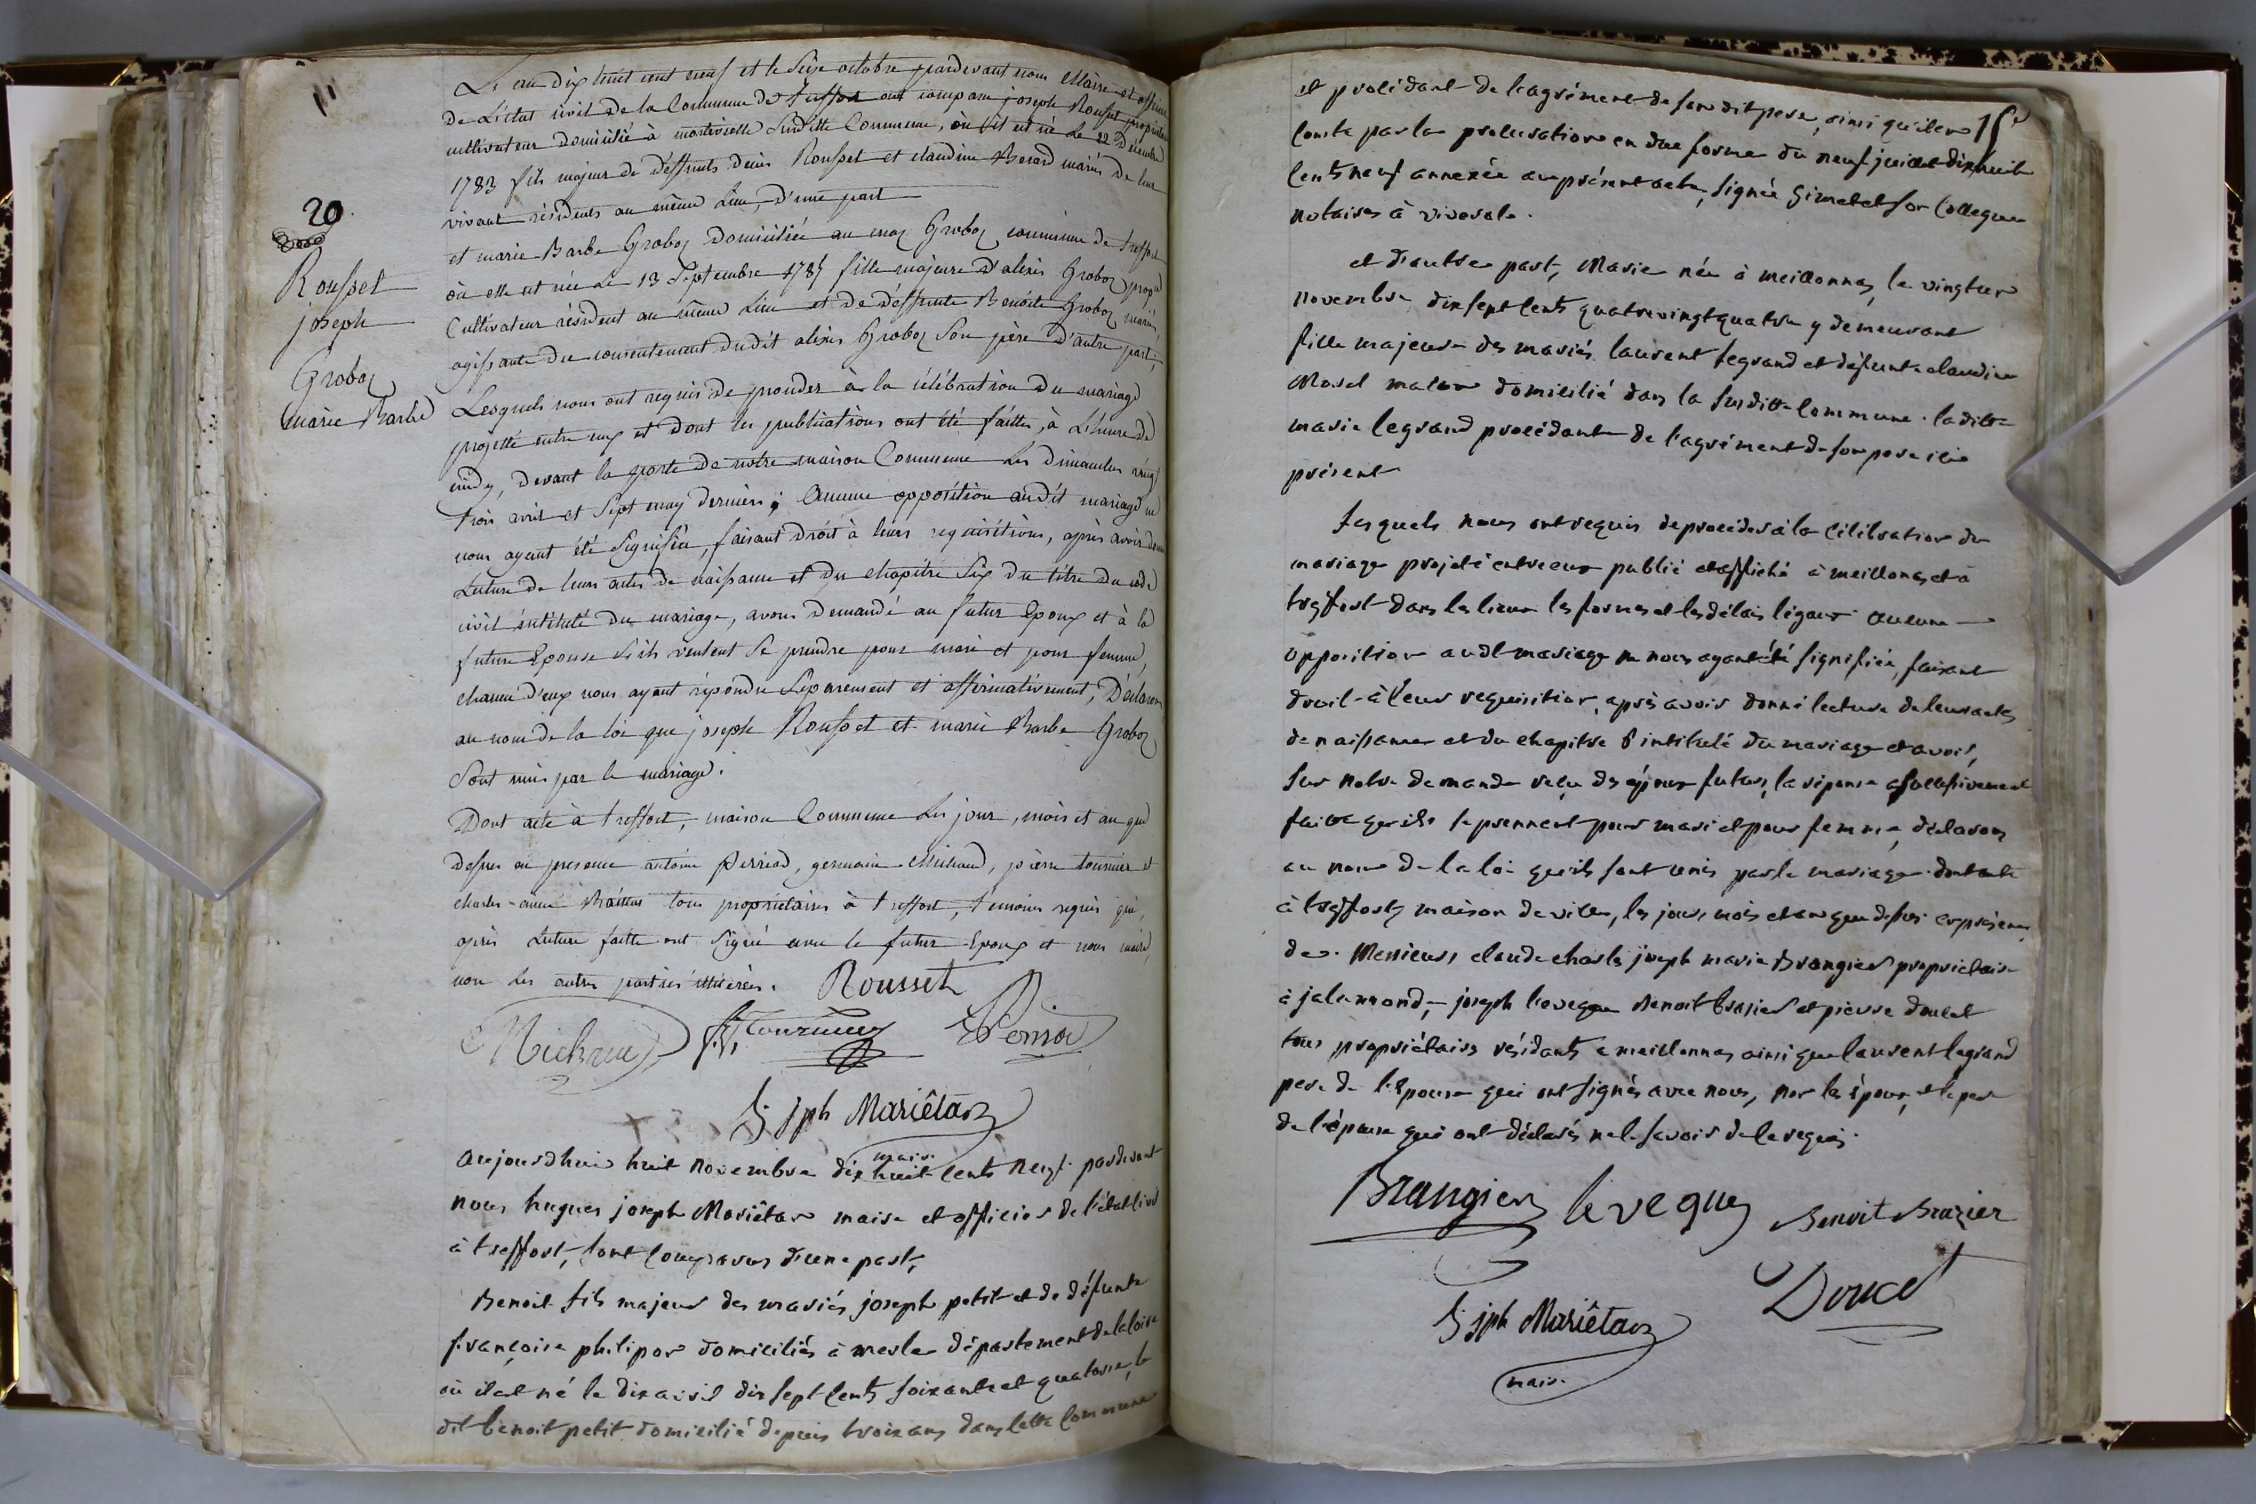 L'an dix huit cent neuf et le seize octobre pardevant nous Maire et officier
de L'état civil de la Commune de Treffort ont comparu joseph Rousset propriétaire
cultivateur domicilié à susditte Commune, où il est né Le 22 Décembre
1783 fils majeur de déffunts denis Rousset et claudine Berard mariés de leur
vivant résidents au même Lieu, d'une part
20
Rousset
joseph
Groboz
marie Barbe
et marie Barbe Groboz domiciliée au maz Groboz commune de treffort
où elle est née Le 13 Septembre 1787 fille majeure d'alexis Groboz prop.re
Cultivateur résident au même Lieu et de déffunte Benoite Groboz mariés,
agissante du consentement dudit alexis Groboz son père d'autre part;
Lesquels nous ont requis de proceder à la célébration du mariage
projetté entre eux et dont les publications ont été faittes, à L'heure de
midy, devant la porte de notre maison Commune Les dimanches vingt
trois avril et sept may derniers; Aucune opposition audit mariage ne
nous ayant été signifiée, faisant droit à leurs requisitions, après avoir donné
Lecture de leurs actes de naissance et du chapitre Six du titre du code
civil intitulé du mariage, avons demandé au futur Epoux et à la
future Epouse s'ils veulent se prendre pour mari et pour femme,
chacun d'eux nous ayant répondu separement et affirmativement, Déclarons
au nom de la loi que joseph Rousset et marie Barbe Groboz
sont unis par le mariage.
Dont acte à treffort, maison Commune Les jour, mois et an que
dessus en presence antoine Perriod, germain Michaud, pierre tournier et
charles tous proprietaires à treffort, temoins requis qui,
après Lecture faitte ont signé avec le futur Epoux et nous maire,
non les autres parties illiterées. Rousset
Tournier
Perriod
H jph Mariêtan
maire
aujourdhuis huit novembre dix huit cents neuf pardevant
nous hugues joseph Mariêtan maire et officier de l'état civil
à treffort, sont comparus d'une part,
Benoit fils majeur des mariés joseph petit et de défunte
françoise philipon domiciliés à département de la loire
où il est né le dix avril dix sept cents soixante et quatorze, le
dit benoit petit domicilié depuis trois ans dans cette Commune
15
et procédant de l'agrément de son dit pere, ainsi qu'il en
conste par la procuration en due forme du neuf juillet dix huit
cents neuf annexée au présent acte, signée Gimet et son Collegue
notaires à
et d'autre part, Marie née à meillonnas le vingt un
novembre dix sept cents quatre vingt quatre y demeurant
fille majeure des mariés laurent legrand et défunte claudine
Morel domicilié dans la susditte commune. laditte
marie legrand procédante de l'agrément de son pere ici
présent
lesquels nous ont requis de procéder à la célébration du
mariage projeté entre eux publié et affiché à meillonas et à
treffort dans les lieux les formes et les délais légaux aucune
opposition audt mariage ne nous ayant été signifiée, faisant
droit à leur requisition, après avoir donné lecture de leurs actes
de naissance et du chapitre 6 intitulé du mariage et avoir,
sur notre demande reçu des époux futurs, la réponse successivement
faite qu'ils se prennent pour mari et pour femme, déclarons
au nom de la loi qu'ils sont unis par le mariage. dont acte
à treffort maison de ville, les jour, mois et an que dessus en présence
de Messieurs claude charles joseph marie Brangier propriétaire
à jalamonde, joseph leveque Benoit brazier et pierre doucet
tous propriétaires résidants à meillonnas ainsi que laurent legrand
pere de l'Epouse qui ont signés avec nous, non les époux, et le pere
de l'épouse qui ont déclarés ne le savoir de ce requis.
Brangier leveque Benoit Brazier
Doucet
H jph Mariêtan
maire